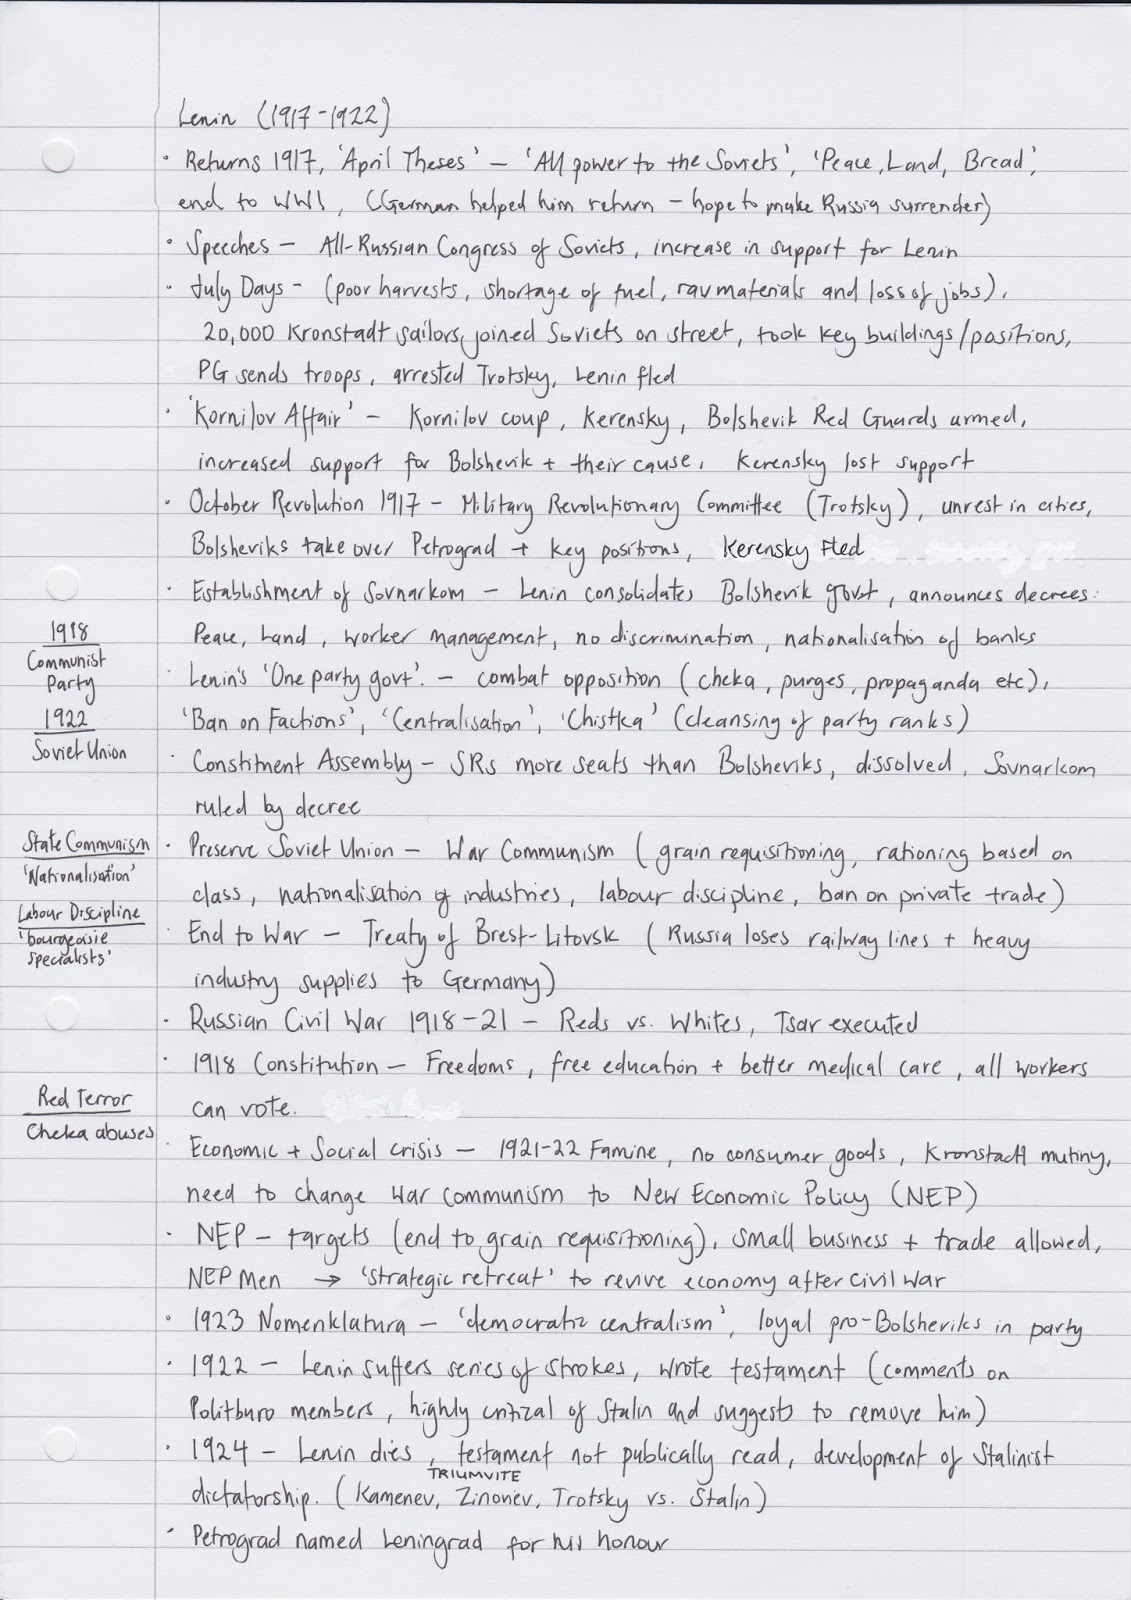 Lenin (1917-1922)
• Returns 1917, 'April Theses' – 'All power to the Soviets', 'Peace, Land, Bread',
end to WW1, (German helped him return – hope to make Russia surrender)
• Speeches – All-Russian Congress of Soviets, increase in support for Lenin
• July Days – (poor harvests, shortage of fuel, raw materials and loss of jobs),
20,000 Kronstadt sailors, joined Soviets on street, took key buildings/positions,
PG sends troops, arrested Trotsky, Lenin fled
• 'Kornilov Affair' – Kornilov coup, Kerensky, Bolshevik Red Guards armed,
increased support for Bolshevik + their cause, Kerensky lost support
• October Revolution 1917 – Military Revolutionary Committee (Trotsky), unrest in cities,
Bolsheviks take over Petrograd + key positions, Kerensky fled
• Establishment of Sovnarkom – Lenin consolidates Bolshevik govt, announces decrees:
Peace, Land, worker management, no discrimination, nationalisation of banks
1918
Communist
Party
1922
Soviet Union
• Lenin's 'One party govt'. – combat opposition (cheka, purges, propaganda etc),
'Ban on Factions', 'Centralisation', 'Chistka' (cleansing of party ranks)
• Constitment Assembly – SRs more seats than Bolsheviks, dissolved, Sovnarkom
ruled by decree
State Communism
'Nationalisation'
Labour Discipline
'bourgeoisie
specialists'
• Preserve Soviet Union – War Communism (grain requisitioning, rationing based on
class, nationalisation of industries, labour discipline, ban on private trade)
• End to War – Treaty of Brest-Litovsk (Russia loses railway lines + heavy
industry supplies to Germany)
• Russian Civil War 1918-21 – Reds vs. Whites, Tsar executed
• 1918 Constitution – Freedoms, free education + better medical care, all workers
can vote.
Red Terror
Cheka abuses
• Economic + Social crisis – 1921-22 Famine, no consumer goods, Kronstadt mutiny,
need to change War Communism to New Economic Policy (NEP)
• NEP – targets (end to grain requisitioning), small business + trade allowed,
NEP Men → 'strategic retreat' to revive economy after Civil War
• 1923 Nomenklatura – 'democratic centralism', loyal pro-Bolsheviks in party
• 1922 – Lenin suffers series of strokes, wrote testament (comments on
Politburo members, highly critical of Stalin and suggests to remove him)
• 1924 – Lenin dies, testament not publically read, development of Stalinist
TRIUMVITE
dictatorship. (Kamenev, Zinoviev, Trotsky vs. Stalin)
• Petrograd named Leningrad for his honour